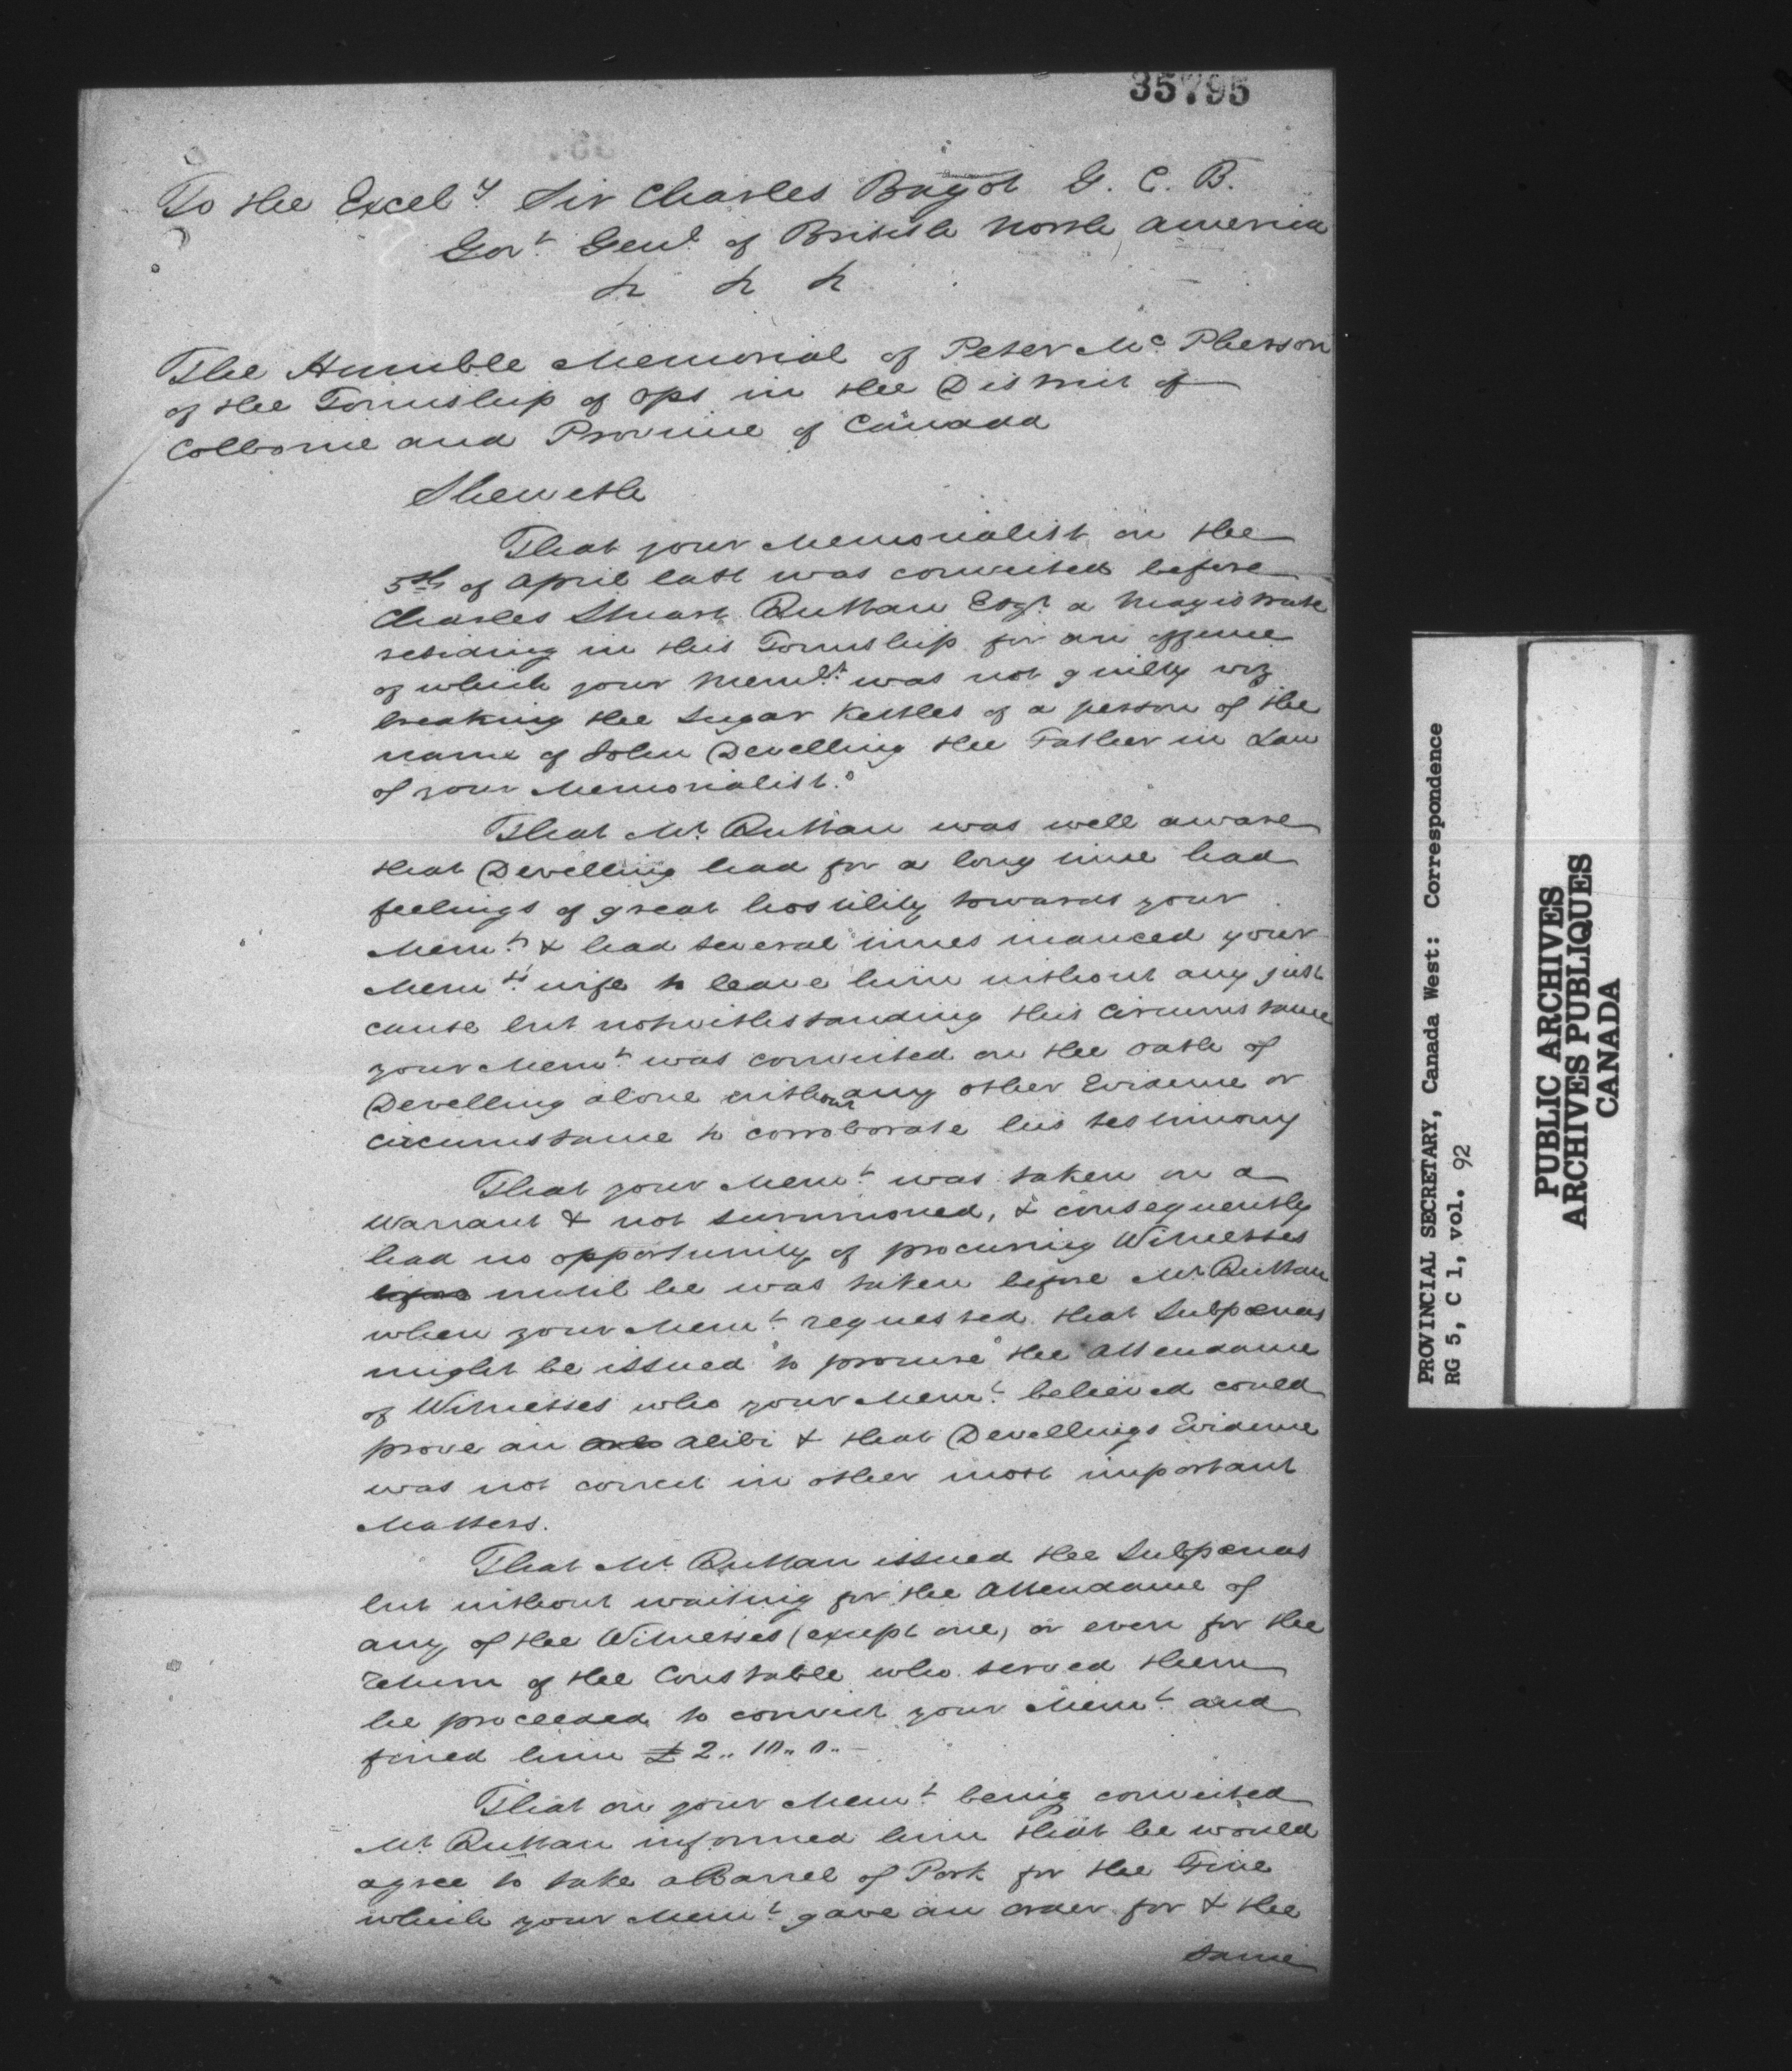 35795
To the Excely Sir Charles Bagot G. C. B.
Govt Genl of British North America
& & &
The Humble Memorial of Peter Mc Pherson
of the Township of Ops in the District of
Colborne and Province of Canada
Sheweth
That your Memorialist on the
5th of April last was convicted before
Charles Stuart Ruttan Esqr a Magistrate
residing in this Township for an offence
of which your Memlt was not guilty viz
breaking the Sugar Kettles of a person of the
name of John Devilling the Father in Law
of your Memorialist.
That Mr Ruttan was well aware
that Devilling had for a long time had
feelings of great hostility towards your
Memt & had several times induced your
Memts wife to leave him without any just
cause but notwithstanding this Circumstance
your Memt was convicted on the oath of
Devilling alone without any other Evidence or
circumstance to corroborate his testimony
That your Memt was taken on a
Warrant & not summoned, & consequently
had no opportunity of procuring Witnesses
before until he was taken before Mr Ruttan
when your Memt requested that Subpœnas
might be issued to procure the Attendance
of Witnesses who your Memt believed could
prove an alibi & that Devillings Evidence
was not correct in other most important
Matters.
That Mr Ruttan issued the Subpœnas
but without waiting for the Attendance of
any of the Witnesses (except one, or even for the
return of the Constable who served them
he proceeded to convict your Memt and
fined him £ 2.. 10.. 0..
That on your Memt being convicted
Mr Ruttan informed him that he would
agree to take a Barrel of Pork for the Fine
which your Memt gave an order for & the
same
PROVINCIAL SECRETARY, Canada West: Correspondence
RG 5, C 1, vol. 92
PUBLIC ARCHIVES
ARCHIVES PUBLIQUES
CANADA